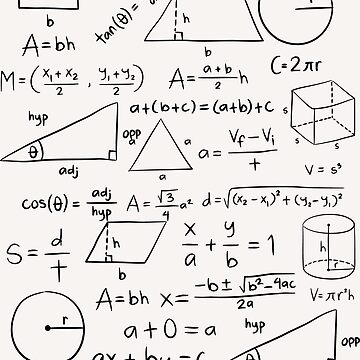 b
tan(θ) =
h
b
r
A = bh
C = 2πr
M = (x₁ + x₂ / 2 , y₁ + y₂ / 2)
A = a + b / 2 h
hyp
opp
θ
adj
a + (b + c) = (a + b) + c
a
a
a
a = Vf - Vi / t
s
s
s
V = s³
cos(θ) = adj / hyp
A = √3 / 4 a²
d = √(x₂ - x₁)² + (y₂ - y₁)²
S = d / t
h
b
x / a + y / b = 1
h
r
V = πr²h
A = bh
x = -b ± √b² - 4ac / 2a
r
a + 0 = a
hyp
opp
ax + by = c